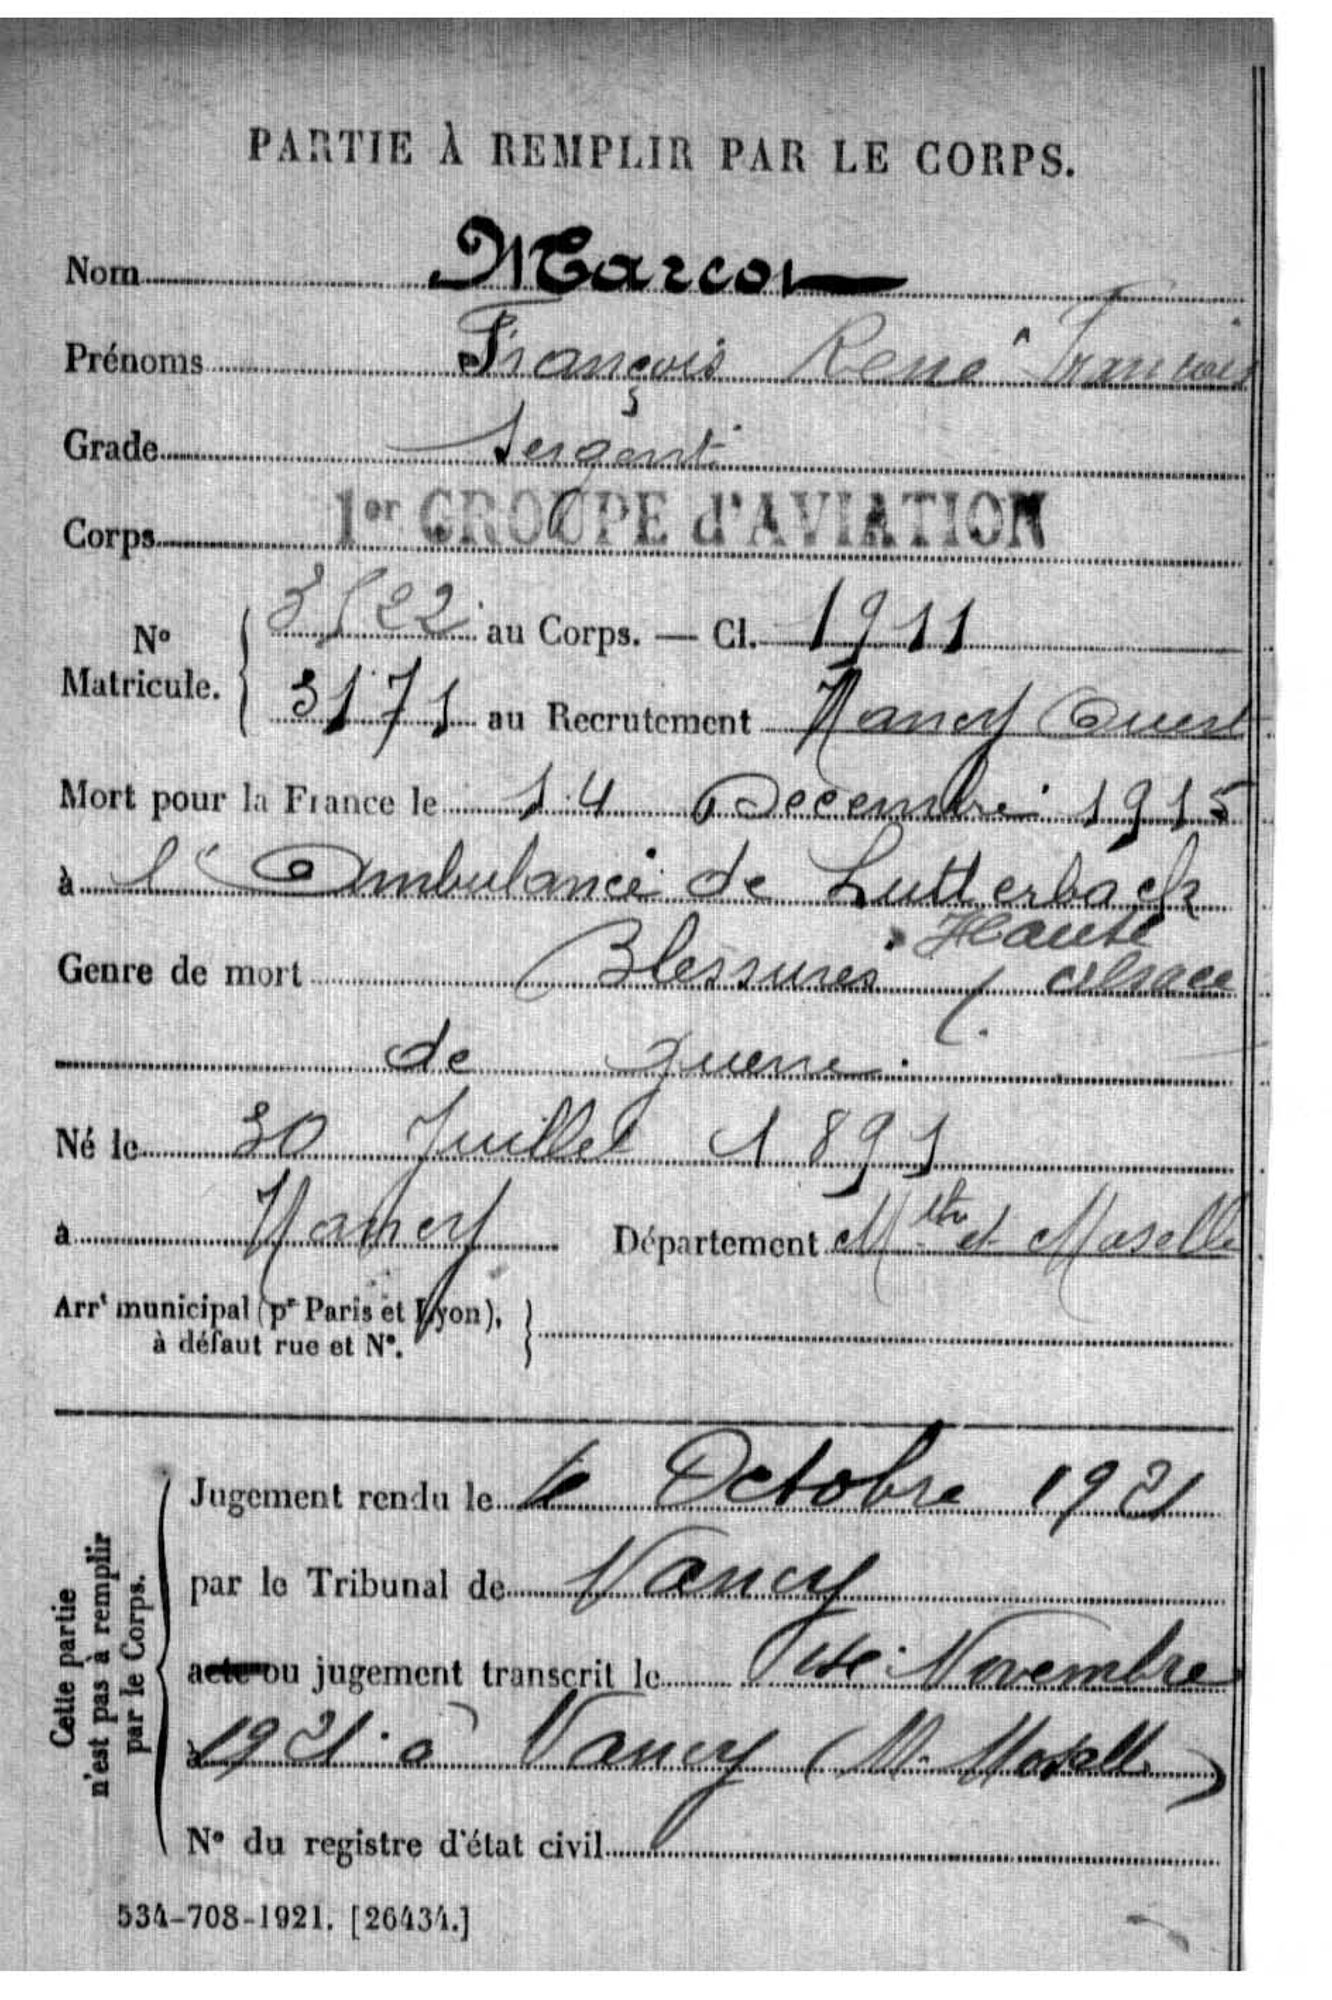 PARTIE À REMPLIR PAR LE CORPS.
Nom Marcot
Prénoms François René François
Grade Sergent
Corps 1er GROUPE d'AVIATION
N° Matricule. 3522 au Corps. — Cl. 1911
3171 au Recrutement Nancy Ouest
Mort pour la France le 14 Décembre 1915
à l'Ambulance de Lutterbach
Haute
Genre de mort Blessures Alsace
de guerre.
Né le 30 Juillet 1891
à Nancy Département Mthe et Moselle
Arrt municipal (pr Paris et Lyon),
à défaut rue et N°.
Cette partie n'est pas à remplir par le Corps.
Jugement rendu le Octobre 1921
par le Tribunal de Nancy
acte ou jugement transcrit le Novembre
à 1921 à Nancy (M. Moselle)
N° du registre d'état civil
534-708-1921. [26434.]